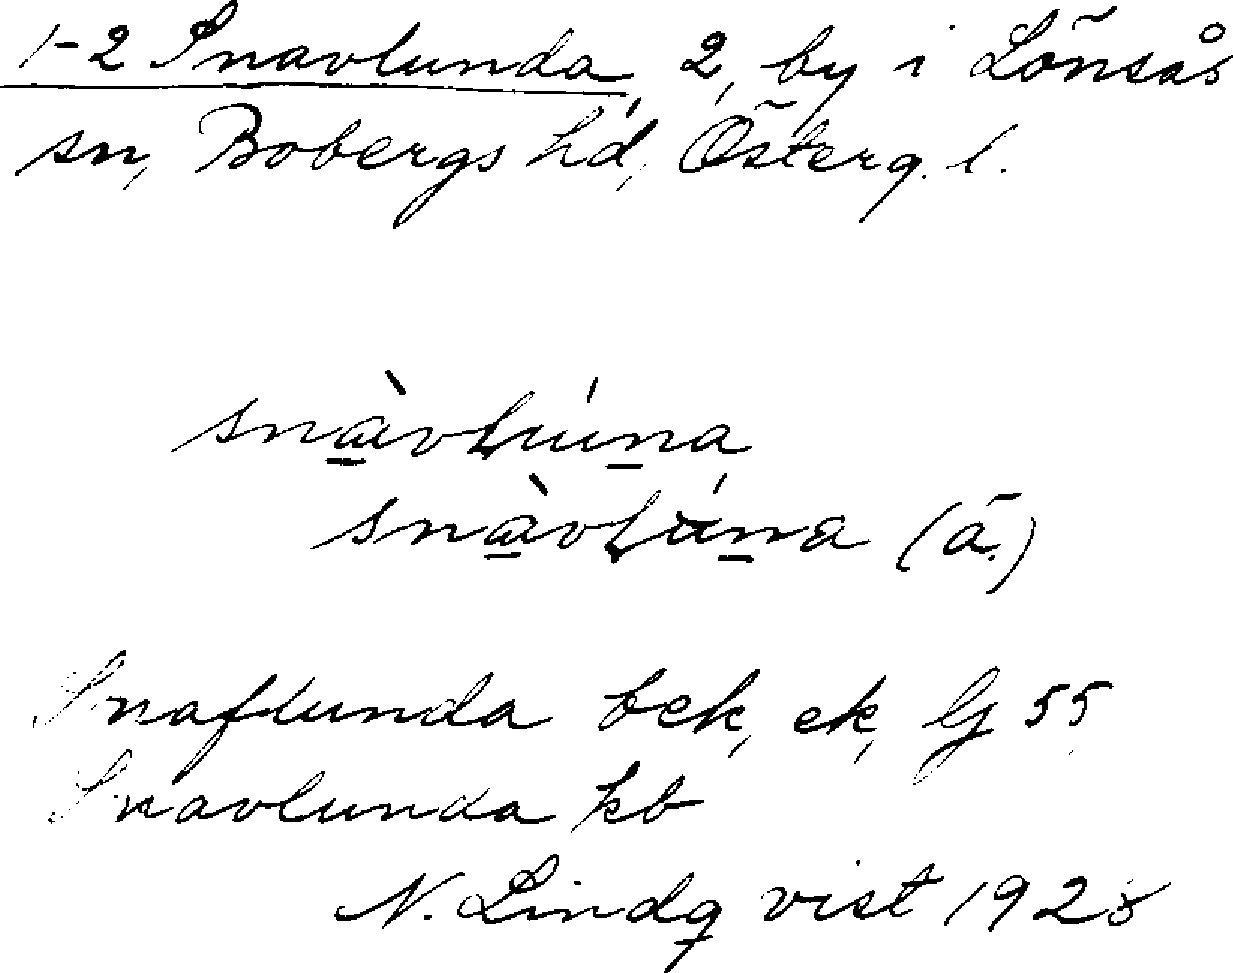 1-2 Snavlunda, 2, by i Lönsås
sn, Bobergs hd, Österg. l.
snàvLúna
snàvLúna (ä.)
Snaflunda bek, ek, G 55
Snavlunda kb
N. Lindqvist 1928